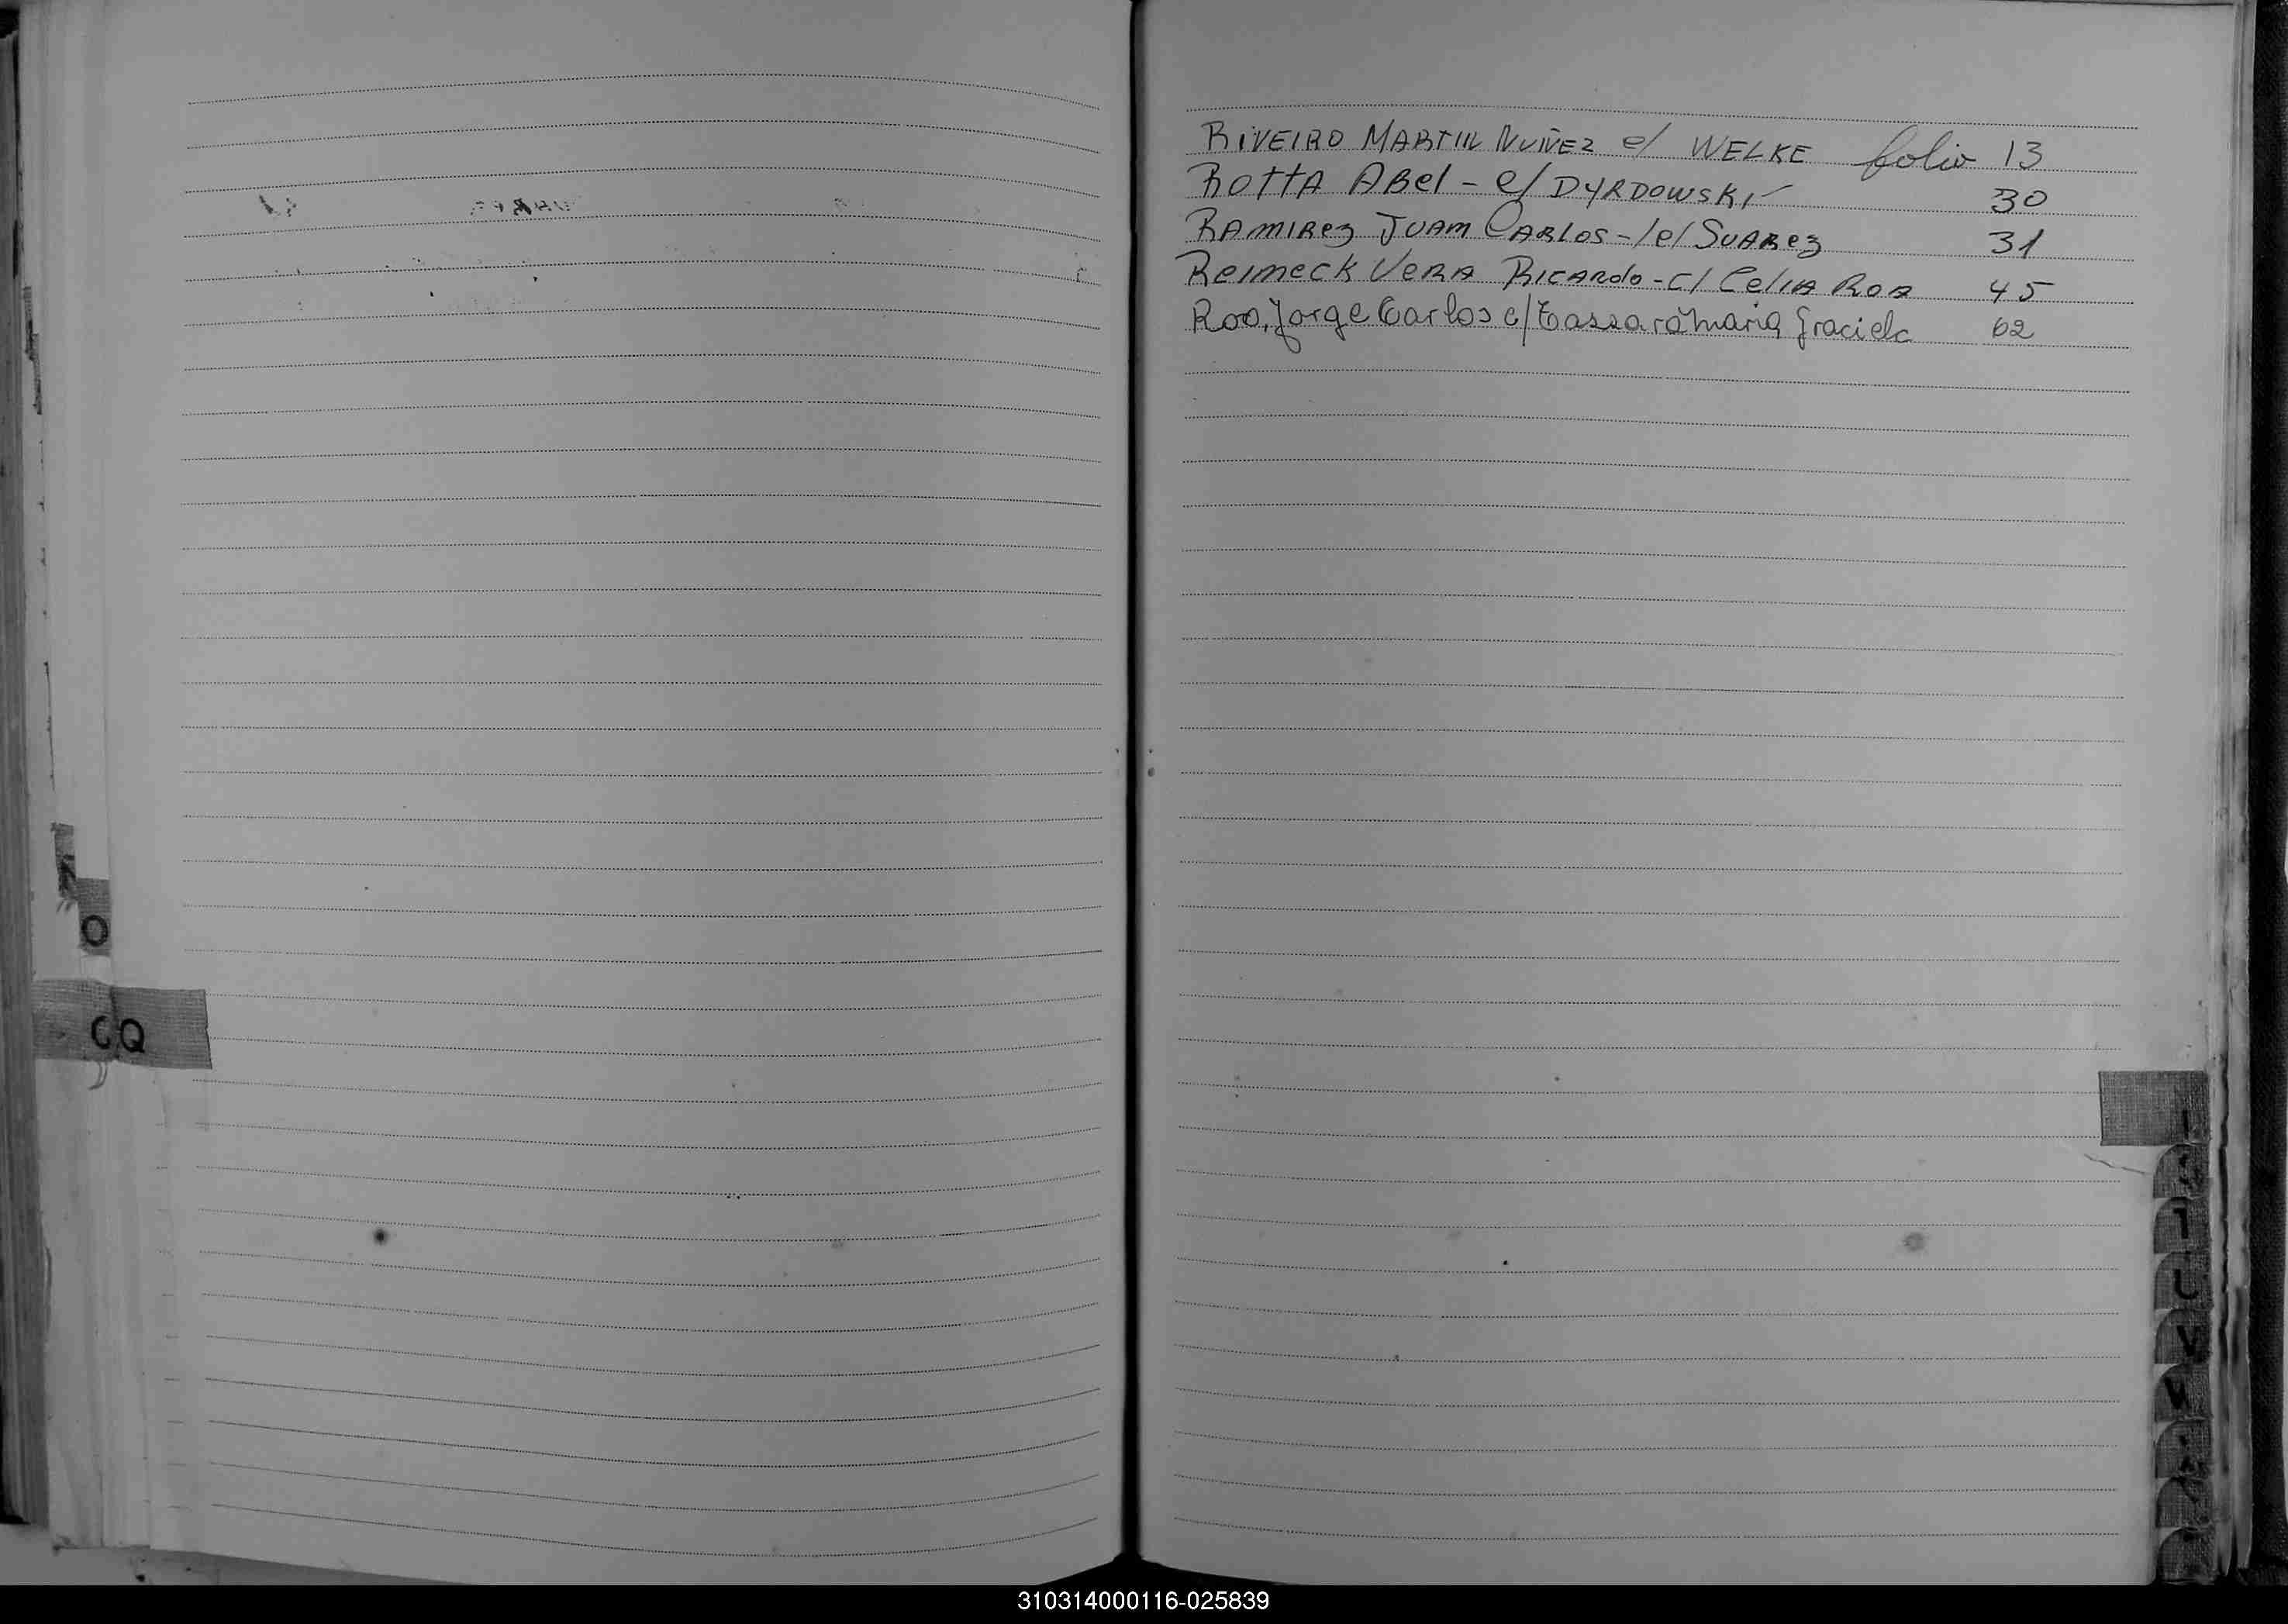 RIVEIRO MARTIN NUÑEZ c/ WELKE folio 13
ROTTA ABel - c/ DYRDOWSKI 30
RAMIRez JUAN CARLOS - /c/ SUARez 31
ReimecK VeRA RICARdo - c/ CeliA ROA 45
Roo, Jorge Carlos c/ Tassara María Graciela 62
O
CQ
U
V
310314000116-025839